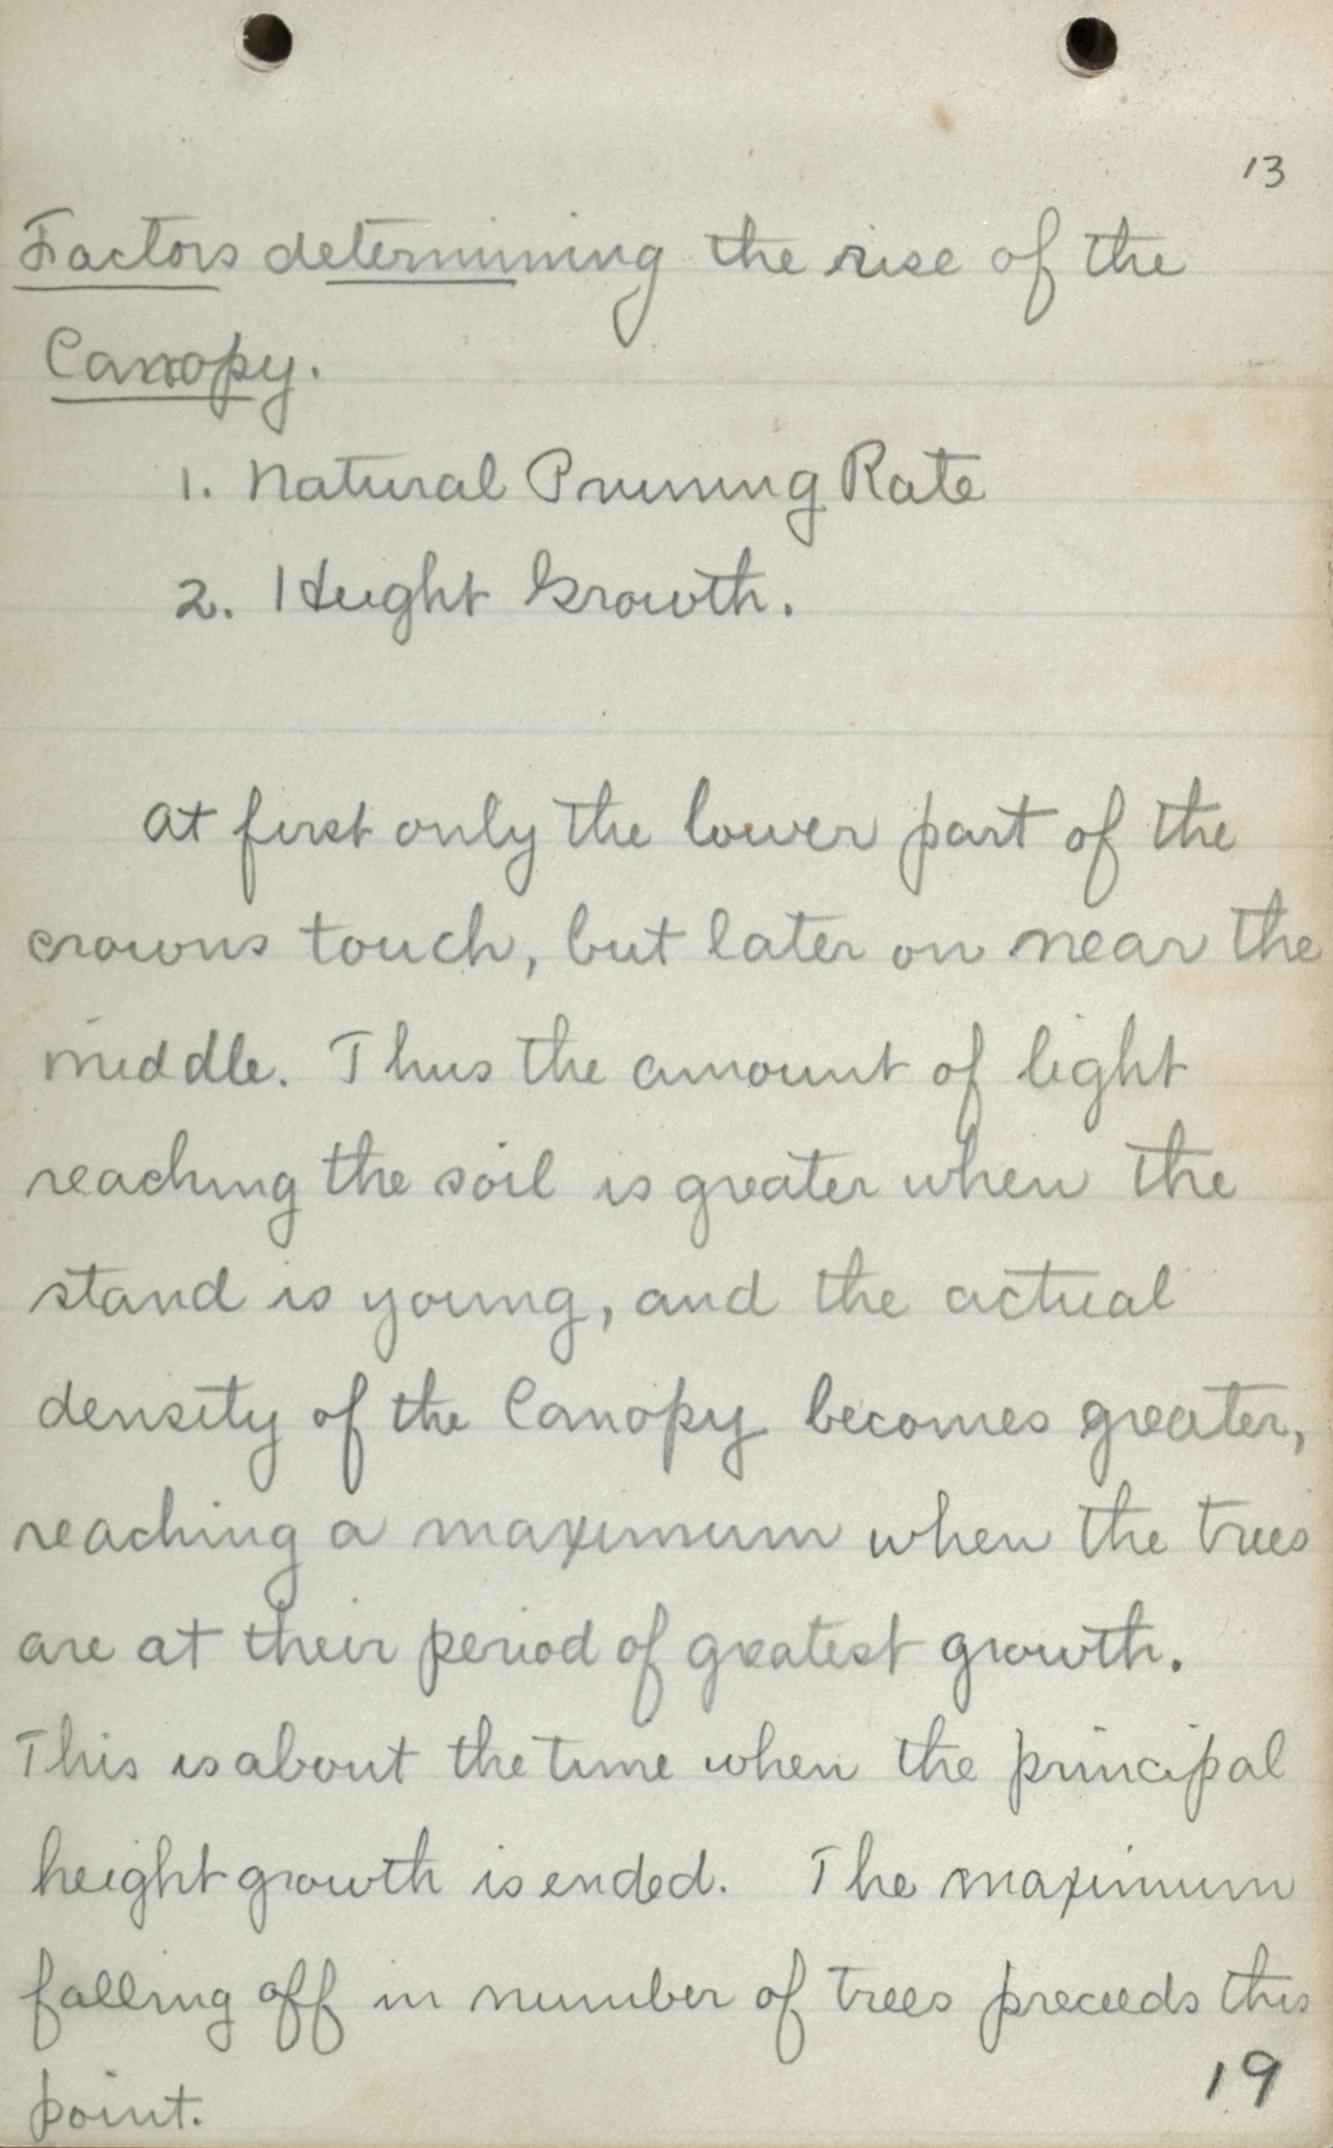 13
Factors determining the rise of the
Canopy.
1. Natural Pruning Rate
2. Height Growth.
At first only the lower part of the
crowns touch, but later on near the
middle. Thus the amount of light
reaching the soil is greater when the
stand is young, and the actual
density of the Canopy becomes greater,
reaching a maximum when the trees
are at their period of greatest growth.
This is about the time when the principal
height growth is ended. The maximum
falling off in number of trees preceeds this
point.
19